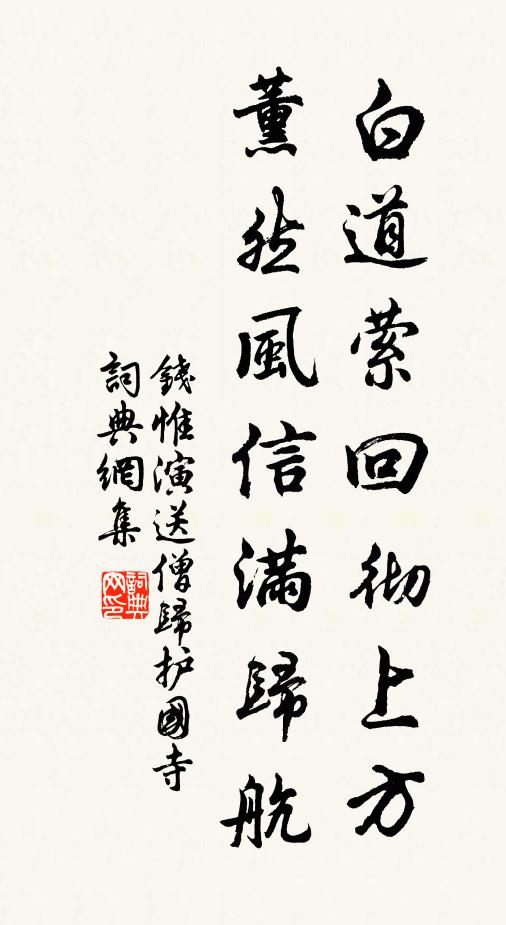 白道萦回彻上方
薰然風信滿歸航
錢惟演送僧歸护國寺
詞典網集
詞典网印